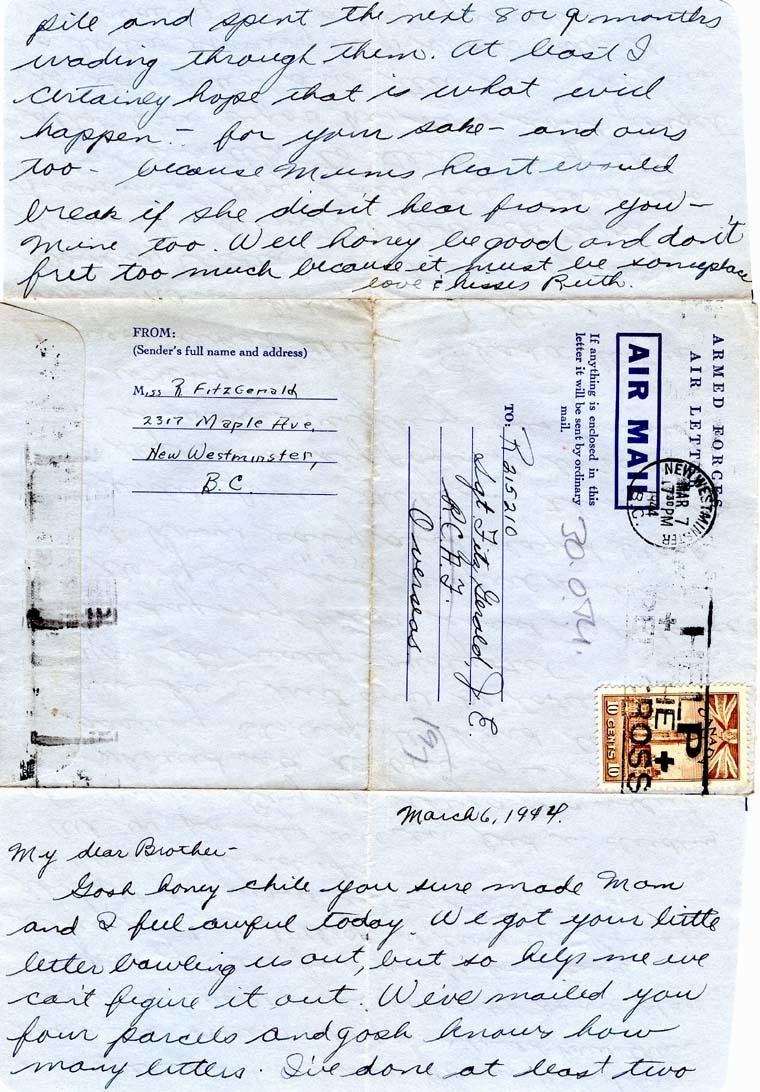 pile and spent the next 8 or 9 months
wading through them. At least I
certainly hope that is what will
happen - for your sake - and ours
too - because Mums heart would
break if she didn't hear from you -
Mine too. Well honey be good and don't
fret too much because it must be someplace
love & kisses Ruth.
FROM:
(Sender's full name and address)
Miss R FitzGerald
2317 Maple Ave,
New Westminster,
B.C.
ARMED FORCES
AIR LETTER
AIR MAIL
If anything is enclosed in this
letter it will be sent by ordinary
mail.
NEW WESTMINSTER
MAR 7
7 30 PM
1944
B.C.
TO: R 215210
Sgt Fitz Gerald, J. C.
R.C.A.F.
Overseas
CANADA
10 CENTS 10
March 6, 1944.
My dear Brother -
Gosh honey chile you sure made Mom
and I feel awful today. We got your little
letter bawling us out, but so help me we
can't figire it out. We've mailed you
four parcels and gosh knows how
many letters. I've done at least two